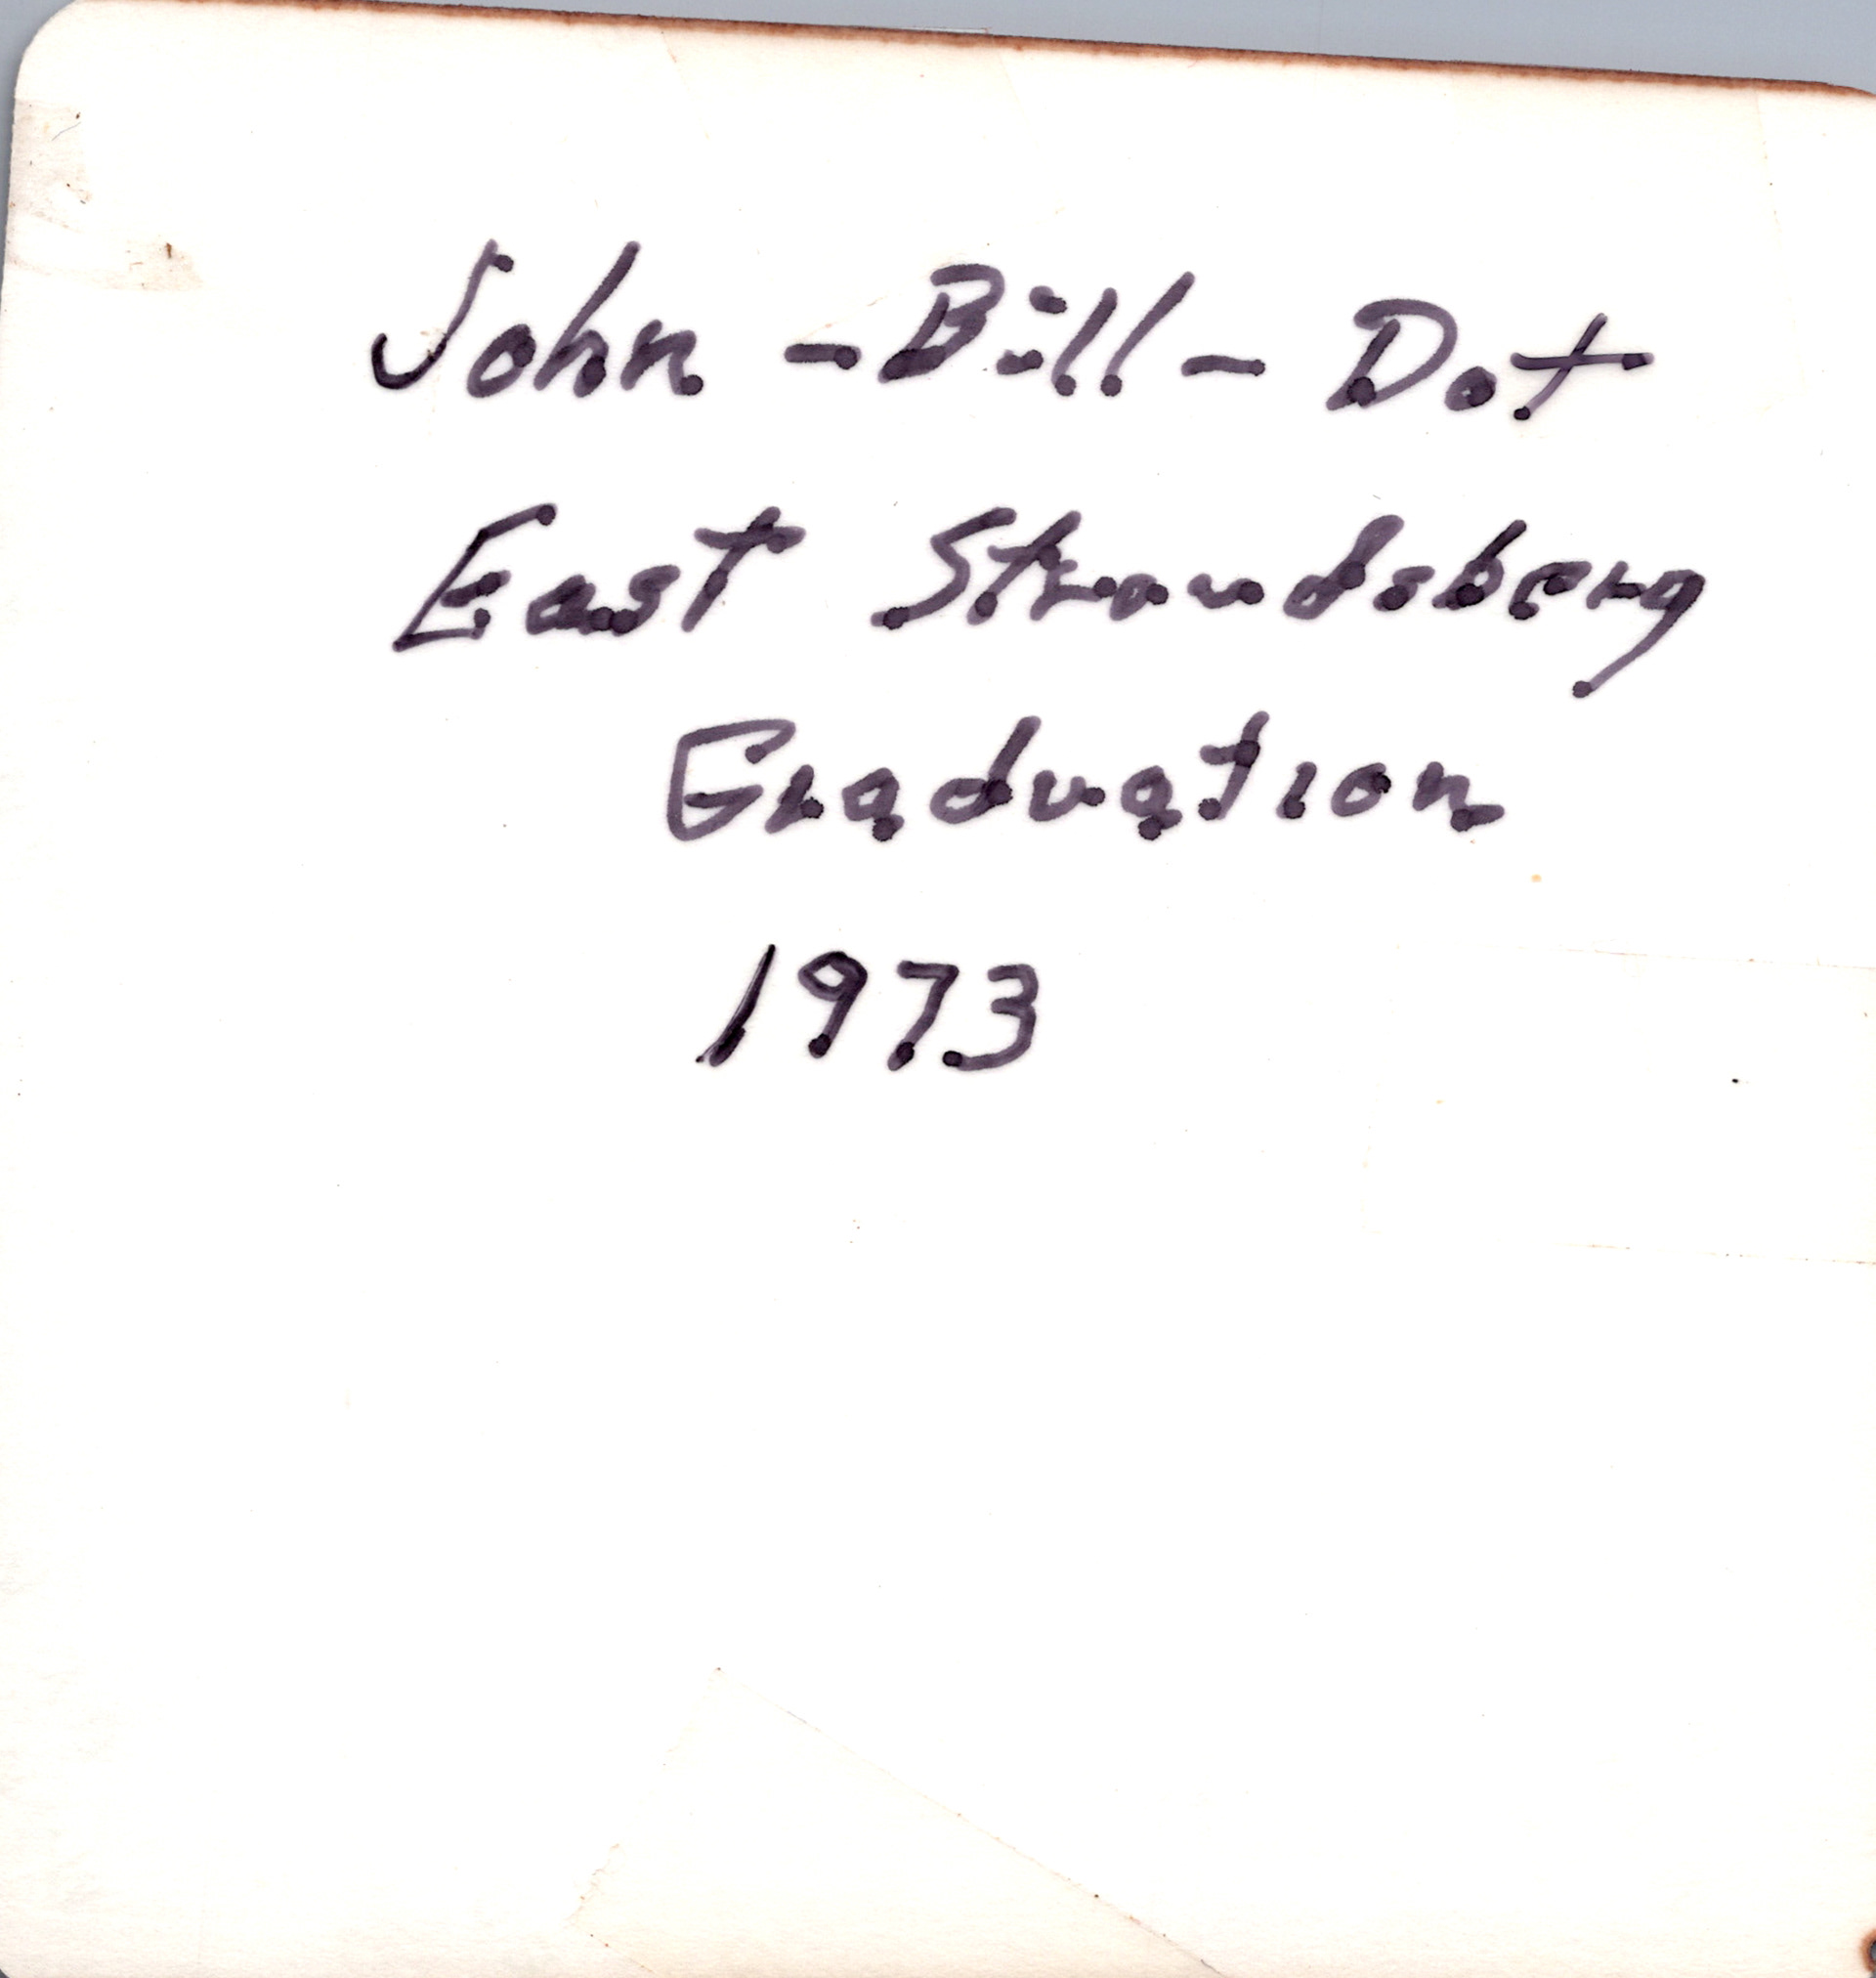 John - Bill - Dot
East Stroudsberg
Graduation
1973